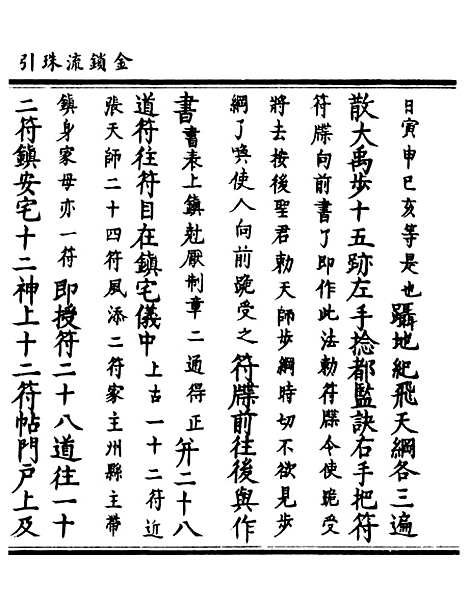 金鎖流珠引
日寅申巳亥等是也躡地紀飛天綱各三遍
散大禹步十五跡左手捻都監訣右手把符
符牒向前書了即作此法勑符牒令使跪受
將去按後聖君勑天師步綱時切不欲見步
綱了喚使人向前跪受之符牒前往後與作
書書表上鎮尅厭制章二通得正并二十八
道符往符目在鎮宅儀中上古一十二符近
張天師二十四符風添二符家主州縣主帶
鎮身家母亦一符即授符二十八道往一十
二符鎮安宅十二神上十二符帖門戶上及